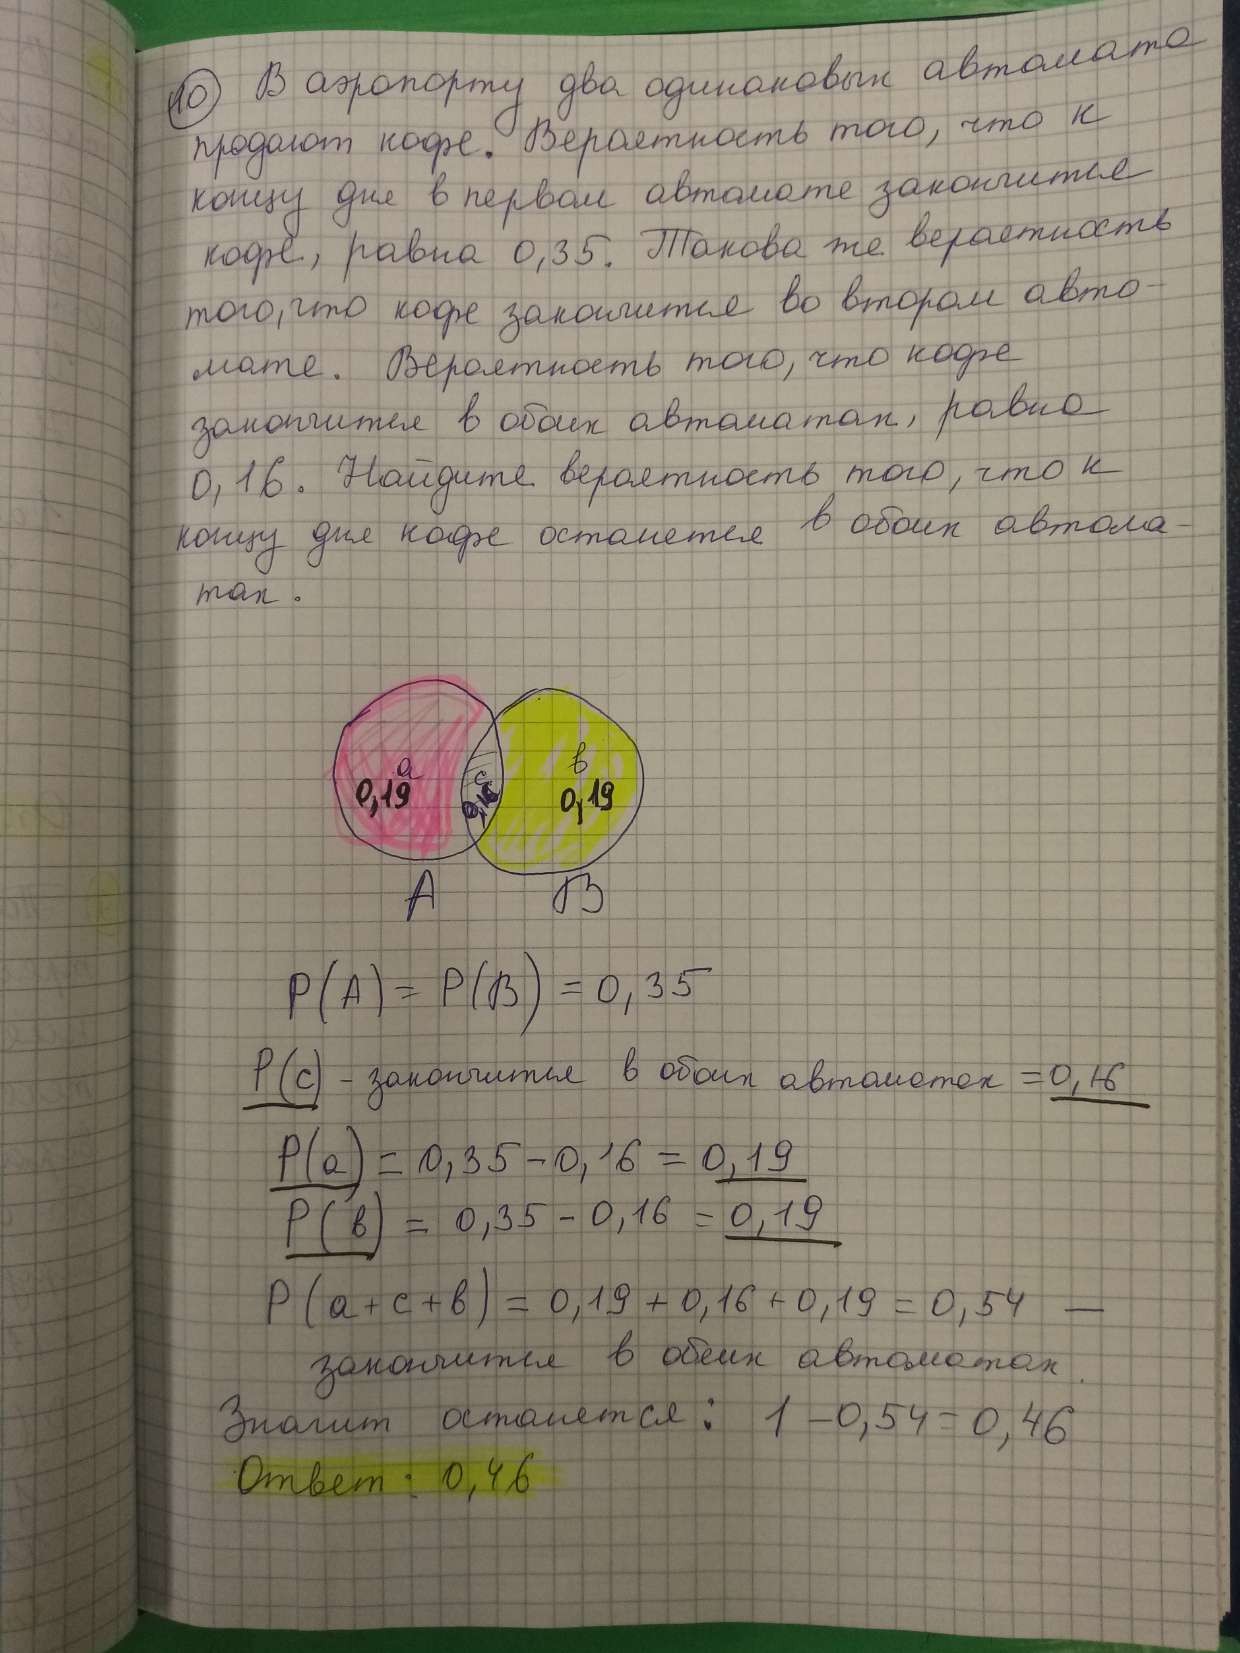 10 В аэропорту два одинаковых автомата
продают кофе. Вероятность того, что к
концу дня в первом автомате закончится
кофе, равна 0,35. Такова же вероятность
того, что кофе закончится во втором авто-
мате. Вероятность того, что кофе
закончится в обоих автоматах, равна
0,16. Найдите вероятность того, что к
концу дня кофе останется в обоих автома-
тах.
а с в
0,19 0,16 0,19
А В
P(A) = P(B) = 0,35
P(c) - закончится в обоих автоматах = 0,16
P(a) = 0,35 - 0,16 = 0,19
P(в) = 0,35 - 0,16 = 0,19
P(a+c+в) = 0,19 + 0,16 + 0,19 = 0,54 —
закончится в обеих автоматах.
Значит останется: 1 - 0,54 = 0,46
Ответ: 0,46